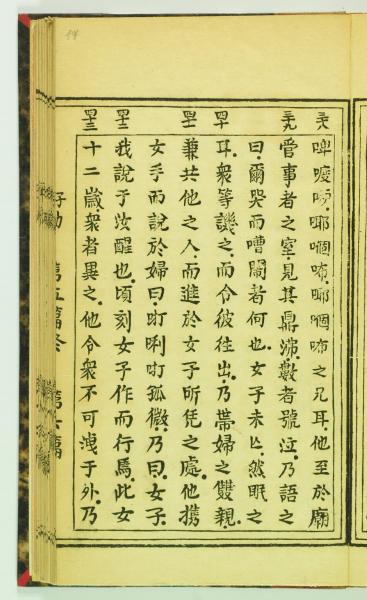 三十八
啤嚘吩.哪嗰咘.哪嗰咘之兄耳.他至於廟
三十九
管事者之室.見其鼎沸.數者號泣.乃語之
曰.爾哭而嘈鬧者何也.女子未亡.然眠之
四十
耳.衆等譏之.而令彼徃出.乃帶婦之雙親.
四十一
兼共他之人.而進於女子所凭之處.他携
女手而說於婦曰.叮唎叮孤微.乃曰.女子.
四十二
我說于汝醒也.頃刻女子作而行焉.此女
四十三
十二歲.衆者異之.他令衆不可洩于外.乃
第五篇終 第六篇